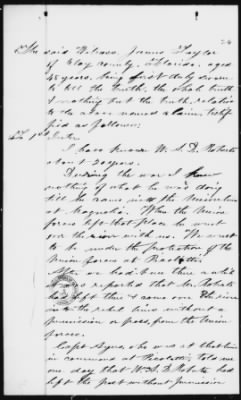 24
The said Witness, Jeems Taylor
of Clay County, Florida, aged
45 years, being first duly sworn
to tell the truth, the whole truth
& nothing but the truth, relative
to the above named claim, testi-
fied as follows:
To 1st Inter.
I have known W. S. D. Roberts
about 20 years.
During the war I knew
nothing of what he was doing
till he came into the Union lines
at Magnolia. When the Union
forces left that place he went
over the river with us. We went
to be under the protection of the
Union forces at Picolatti.
After we had been there a while
it was reported that Mr. Roberts
had left there & come over the river
into the rebel lines without a
permission or pass, from the Union
forces.
Capt. Ayers, who was at that time
in command at Picolatti, told me
one day that W. S. D. Roberts had
left the post without permission